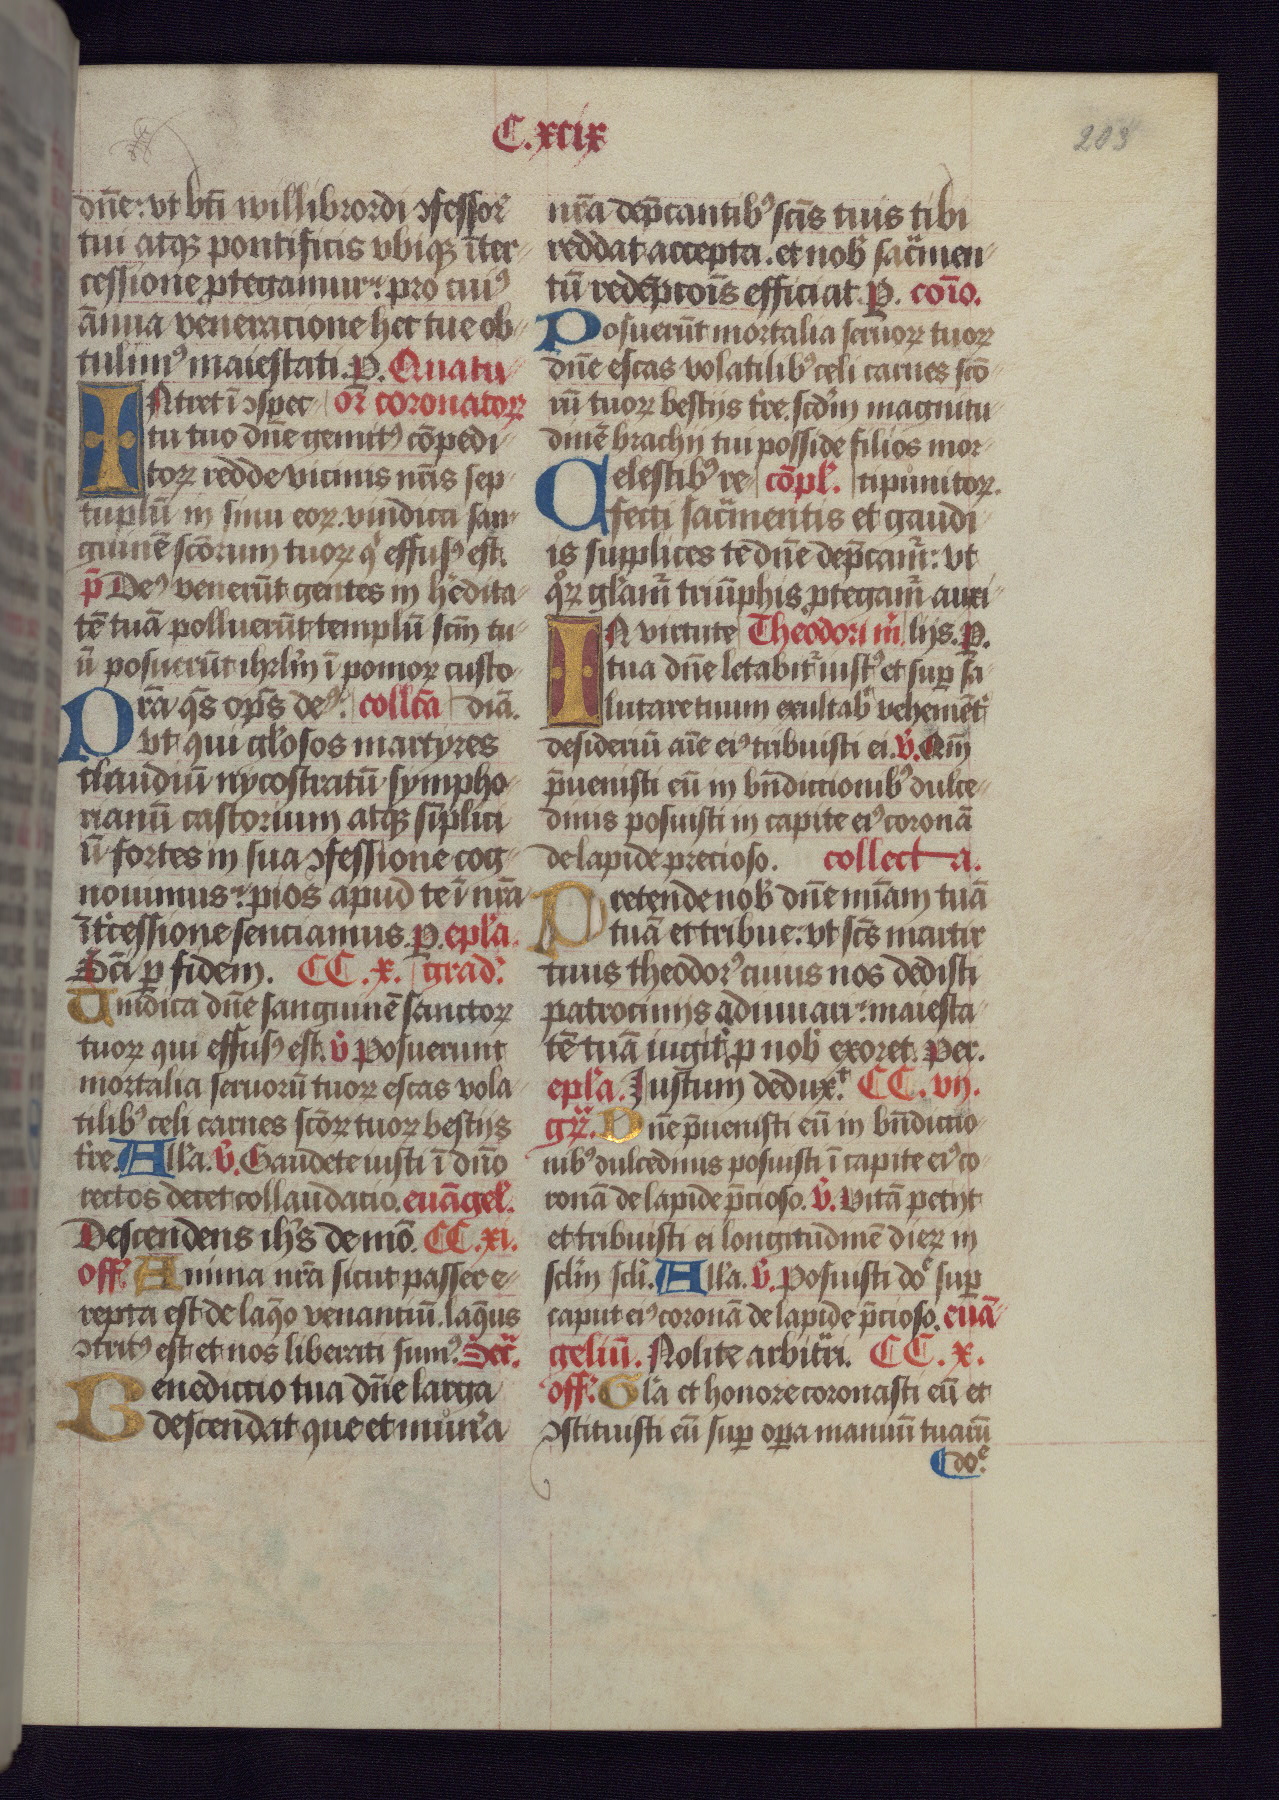 C.xcix
203
dn̄e: vt bt̄i willibrordi ꝯfessor̄
tui atqꝫ pontificis vbiqꝫ īter-
cessione ꝓtegamur: pro cuiꝰ
ānua veneracione hec tue ob-
tulimꝰ maiestati. P. Quatu-
INtret ī ꝯspec- or̄ coronatorꝝ
tu tuo dn̄e gemitꝰ cōpedi-
torꝝ redde vicinis nr̄is sep-
tuplū in sinu eorꝝ. vindica san-
guinē scōrum tuorꝝ q̄ effusꝰ est.
p̄ Deꝰ venerūt gentes in hēdita-
tē tuā polluerūt templū scm̄ tu-
ū posuerūt ihrlm̄ ī pomorꝝ custo-
PRā q̄s op̄s deꝰ: collc̄a diā.
vt qui glōsos martyres
claudiū nycostratū sympho-
rianū castorium atqꝫ sīplici
ū fortes in sua ꝯfessione cog-
nouimus: pios apud te ī nr̄a
īt̄cessione senciamus. P. epl̄a.
Sc̄i ꝑ fidem. CC.x. grad̄.
Vindica dn̄e sanguinē sanctorꝝ
tuorꝝ qui effusꝰ est. v̄ Posuerunt
mortalia seruorū tuorꝝ escas vola-
tilibꝰ celi carnes scōrꝝ tuorꝝ bestijs
t̄re. All̄a. v̄. Gaudete iusti ī dn̄o
rectos decet collaudacio. euāgel̄.
Descendens ihs̄ de mō. CC.xi.
off̄. Anima nr̄a sicut passer e-
repta est de laq̄o venanciū. laq̄us
ꝯtritꝰ est et nos liberati sumꝰ. Sec̄r.
Benedictio tua dn̄e larga
descendat que et mun̄a
nr̄a dep̄cantibꝰ scīs tuis tibi
reddat accepta. et nob̄ sac̄men-
tū redēpcoīs efficiat. P. cōio.
Posuerūt mortalia seruorꝝ tuorꝝ
dn̄e escas volatilibꝰ celi carnes scō-
rū tuorꝝ bestijs t̄re. scd̄m magnitu-
dinē brachij tui posside filios mor-
Celestibꝰ re- cōpl̄. tipunitorꝝ.
fecti sac̄mentis et gaudi-
is supplices te dn̄e dep̄cam̄: vt
qͦrꝝ gl̄am̄ triūphis ꝓtegam̄ auxi-
IN virtute Theodori m̄. lijs. P.
tua dn̄e letabit̄ iustꝰ et suꝑ sa-
lutare tuum exultab̄ vehemēt̄
desideriū aīe eiꝰ tribuisti ei. v̄. Qm̄
p̄uenisti eū in bn̄dictionibꝰ dulce-
dinis posuisti in capite eiꝰ coronā
de lapide precioso. collecta.
Pretende nob̄ dn̄e miā̄m tuā
tuā et tribue: vt scs̄ martir
tuus theodorꝰ cuius nos dedisti
patrocinijs adiuuari: maiesta-
tē tuā iugit̄ ꝑ nob̄ exoret. Per.
epl̄a. Justum deduxͭ. CC.vij.
gr̄. Dn̄e p̄uenisti eū in bn̄dictio-
nibꝰ dulcedinis posuisti ī capite eiꝰ co-
ronā de lapide p̄cioso. v̄. Vitā petijt
et tribuisti ei longitudinē dierꝝ in
sclm̄ scl̄i. All̄a. v̄. Posuisti dōͤ suꝑ
caput eiꝰ coronā de lapide p̄cioso. euā-
geliū. Nolite arbit̄ri. CC.x.
off̄. Gl̄a et honore coronasti eū et
ꝯstituisti eū suꝑ oꝑa manuū tuarū
dōͤ.